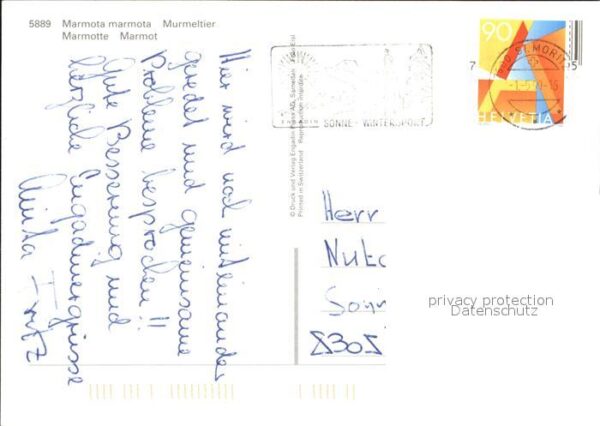 5889 Marmota marmota Murmeltier
Marmotte Marmot
Hier wird noch miteinander
geredet und gemeinsame
Probleme besprochen!!
Gute Besserung und
herzliche Engadinergrüsse
Anita Fritz
© Druck und Verlag Engadin Press AG, Samedan
Printed in Switzerland Reproduction interdite
SONNE - WINTERSPORT
90
ST. MORITZ
HELVETIA
Herr
privacy protection
Datenschutz